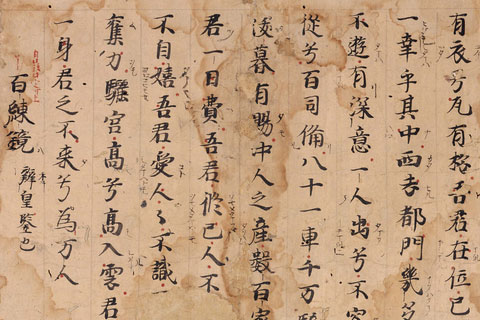 有衣兮瓦有松吾君在位已
一幸乎其中西去都門幾多
不遊有深意一人出兮不容
從兮百司俻八十一車千万騎
暮有賜中人之産數百家
君一日費吾君修已人不
不自嬉吾君愛人々不識
奪力驪宮高兮高入雲君
一身君之不来兮為万人
百練鏡 辨皇鑒也